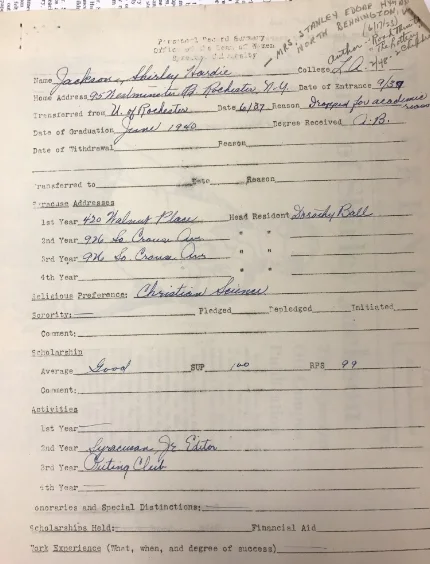 — MRS. STANLEY EDGAR HYMAN
NORTH BENNINGTON, Vt
(6/17/53)
Personnel Record Summary
Office of the Dean of Women
Syracuse University
Author - Road Through
the Wall
The Lottery
Name Jackson, Shirley Hardie College L.A. 2/48
Home Address 95 Westminster Rd. Rochester, N.Y. Date of Entrance 9/37
Transferred from U. of Rochester Date 6/37 Reason Dropped for academic
reason
Date of Graduation June 1940 Degree Received A.B.
Date of Withdrawal Reason
Transferred to Date Reason
Syracuse Addresses
1st Year 430 Walnut Place Head Resident Dorothy Ball
2nd Year 926 So. Crouse Ave " "
3rd Year 926 So. Crouse Ave " "
4th Year " "
Religious Preference: Christian Science
Sorority: Pledged Depledged Initiated
Comment:
Scholarship
Average Good SUP 100 RPS 99
Comment:
Activities
1st Year
2nd Year Syracusan, Jr. Editor
3rd Year Outing Club
4th Year
onoraries and Special Distinctions:
Scholarships Held: Financial Aid
Work Experience (What, when, and degree of success)